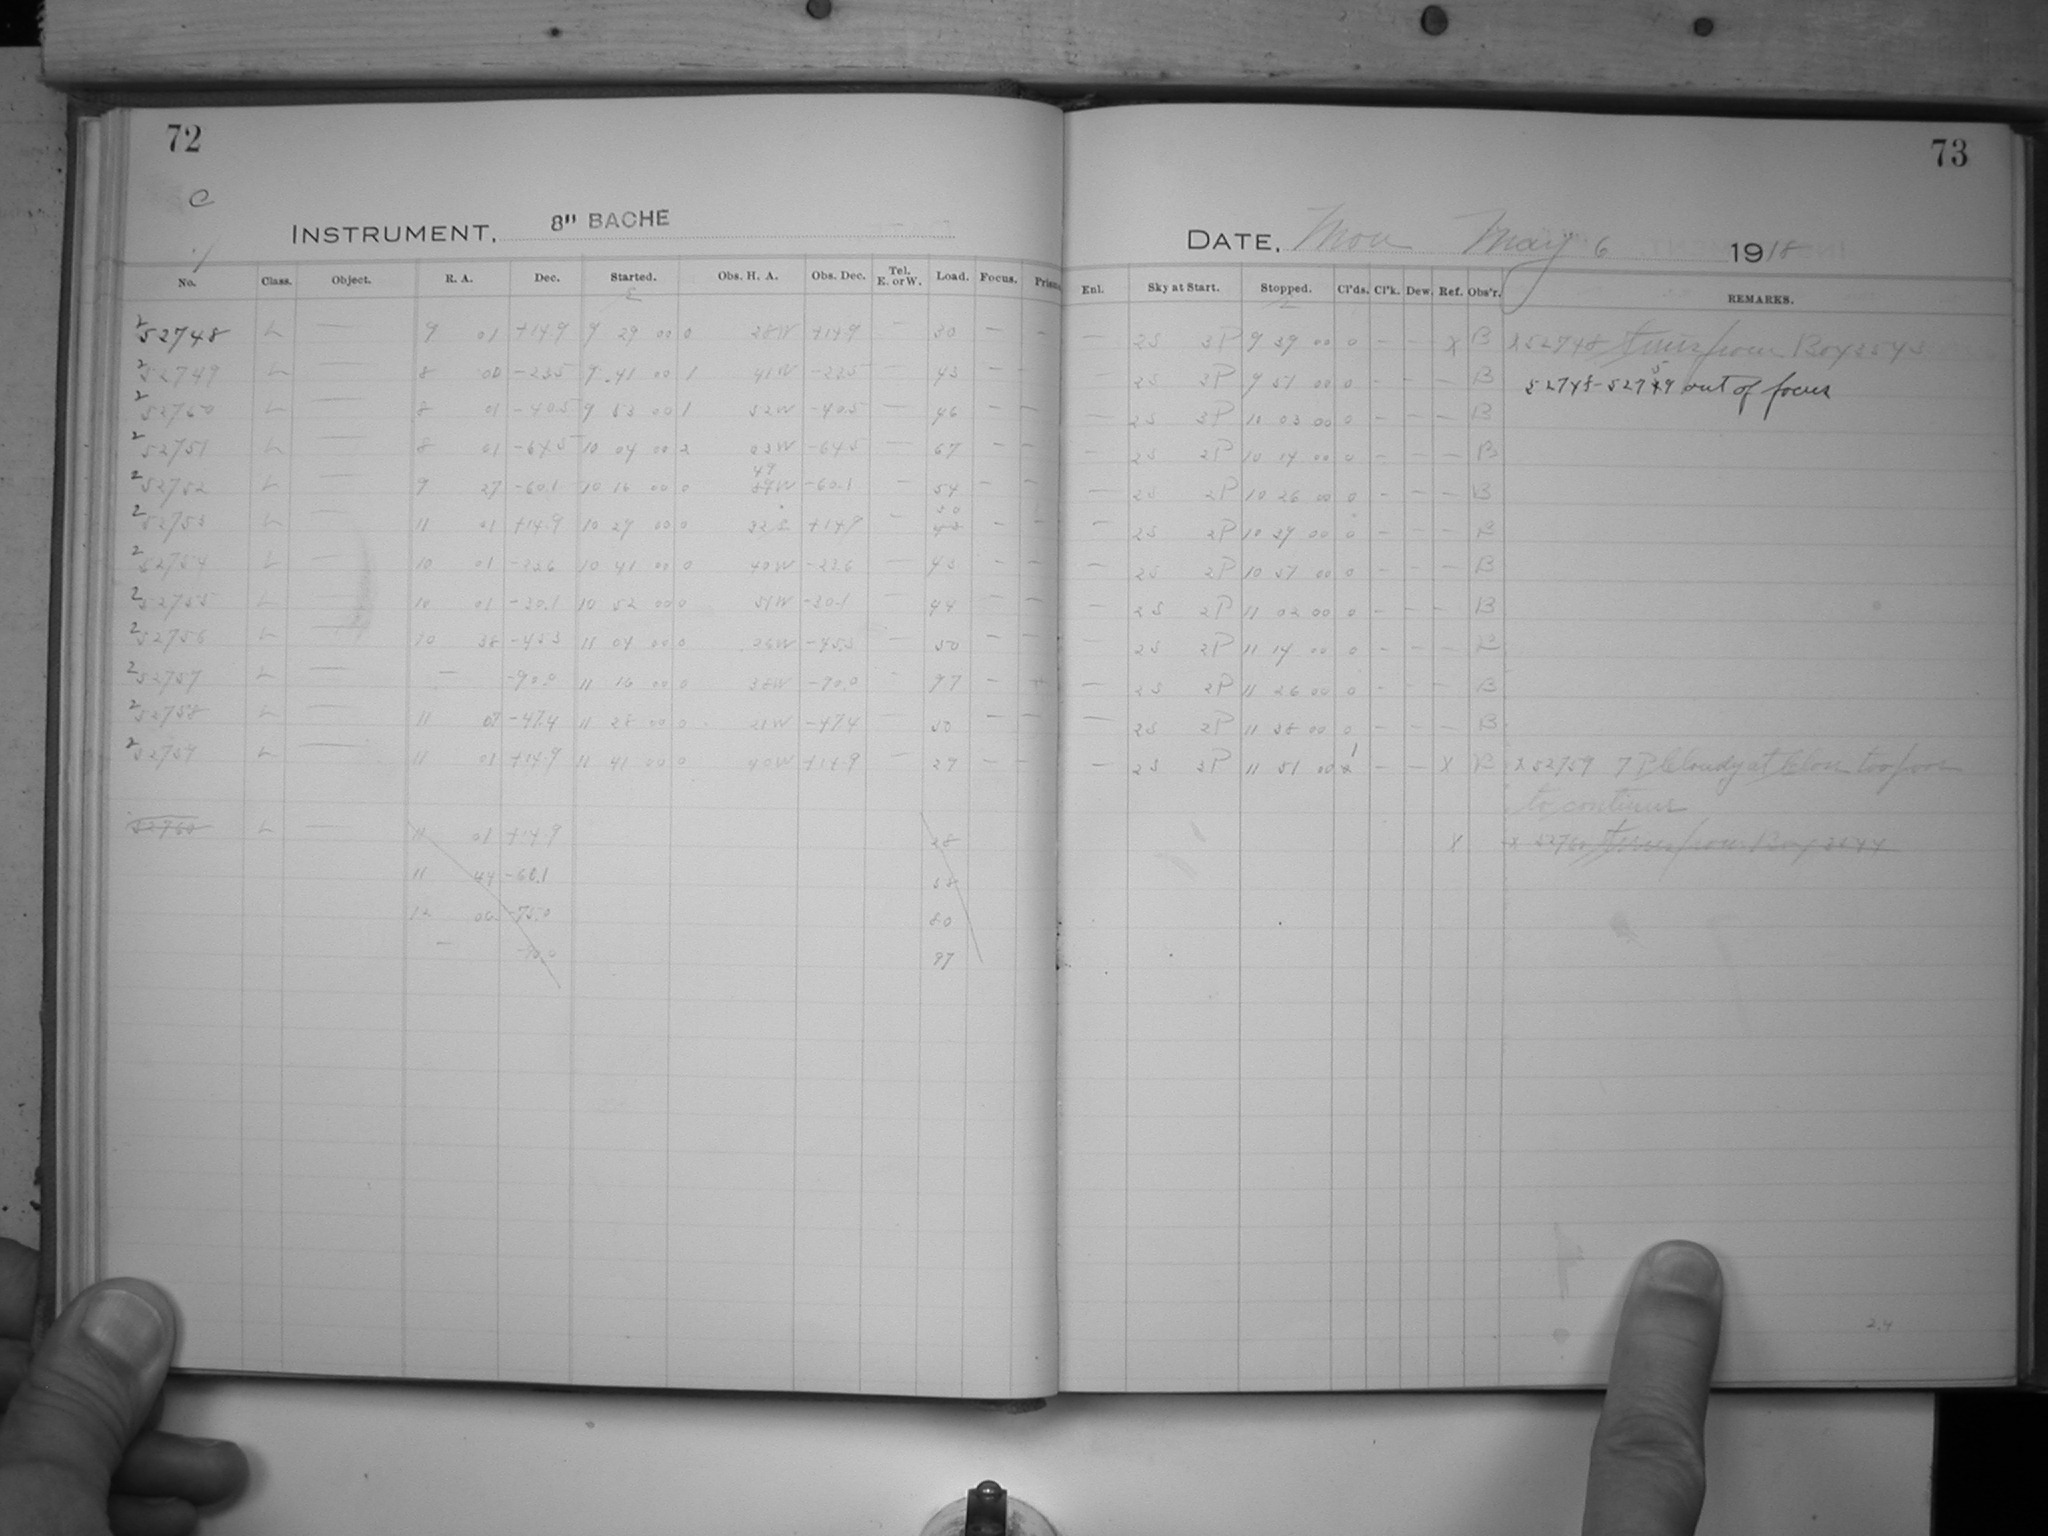 72
C
INSTRUMENT, 8" BACHE
No. Class. Object. R. A. Dec. Started. Obs. H. A. Obs. Dec. Tel. E. or W. Load. Focus.
52748 L — 9 01 +14.9 9 29 00 0 28W +14.9 — 30 — —
52749 L — 8 00 9 41 00 1 41W — 43 — —
L — 8 01 -40.5 9 53 00 1 52W -40.5 — 46 — —
52751 L — 8 01 -64.5 10 04 00 2 03W -64.5 — 67 — —
52752 L — 9 27 -60.1 10 16 00 0 49 W -60.1 — 54 — —
52753 L — 11 01 +14.9 10 29 00 0 +14.9 — 30 — —
52754 L — 10 01 10 41 00 0 40W — 43 — —
52755 L — 10 01 -30.1 10 52 00 0 51W -30.1 — 44 — —
52756 L — 10 38 -45.3 11 04 00 0 -45.3 — 50 — —
52757 L — — -90.0 11 16 00 0 38W — 97 —
52758 L — 11 07 -47.4 11 28 00 0 21W -47.4 — 50 — —
52759 L — 11 01 +14.9 11 41 00 0 40W +14.9 — 27 — —
52760 L — 11 01 +14.9 28
11 44 -60.1 58
12 06 -75.0 80
— 97
73
DATE, Mon May 6 1918
Enl. Sky at Start. Stopped. Cl'ds. Cl'k. Dew. Ref. Obs'r. REMARKS.
— 2S 3P 9 39 00 0 — — X B X 52748 from Box 3543
— 2S 3P 9 51 00 0 — — — B out of focus
— 2S 3P 10 03 00 0 — — — B
— 2S 2P 10 14 00 0 — — — B
— 2S 2P 10 26 00 0 — — — B
— 2S 2P 10 39 00 0 — — — B
— 2S 2P 10 51 00 0 — — — B
— 2S 2P 11 02 00 0 — — — B
— 2S 2P 11 14 00 0 — — — B
— 2S 2P 11 26 00 0 — — — B
— 2S 2P 11 38 00 0 — — — B
— 2S 3P 11 51 00 1 — — X B X 52759 7 P Cloudy at close too poor
to continue
X X 52760 from Box 3544
2.4